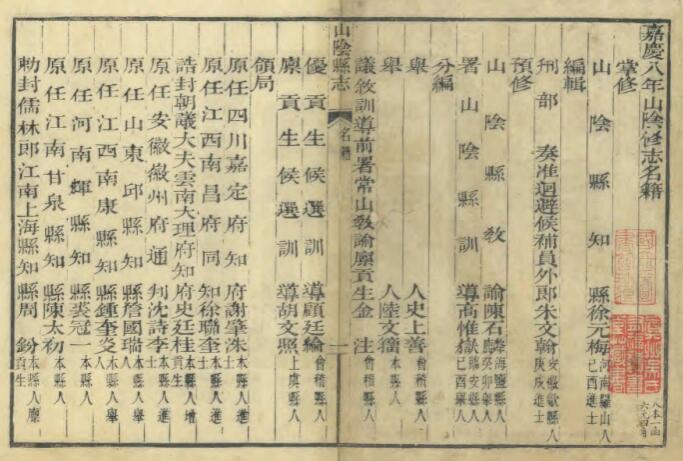 嘉慶八年山陰修志名籍
掌修
山陰縣知縣徐元梅河南羅山人己酉進士
編輯
刑部奏准迴避候補員外郎朱文翰安徽歙縣人庚戌進士
預修
山陰縣教諭陳石麟海鹽縣人癸卯舉人
署山陰縣訓導商惟獄臨安縣人己酉舉人
分編
舉人史上善
舉人陸文籀本縣人
議敘訓導前署常山教諭廩貢生金注會稽縣人
山陰縣志
名籍
一
優貢生候選訓導顧廷綸會稽縣人
廩貢生候選訓導胡文照上虞縣人
領局
原任四川嘉定府知府謝肇洙本縣人進士
原任江西南昌府同知徐聯奎本縣人進士
誥封朝議大夫雲南大理府知府史廷桂本縣人增貢生
原任安徽徽州府通判沈詩李本縣人進士
原任山東邱縣知縣詹國瑞本縣人舉人
原任江西南康縣知縣鍾奎炎本縣人舉人
原任河南輝縣知縣裘冠一本縣人
原任江南甘泉縣知縣陳太初本縣人
勅封儒林郎江南上海縣知縣周鈖本縣人廩貢生
八本一函